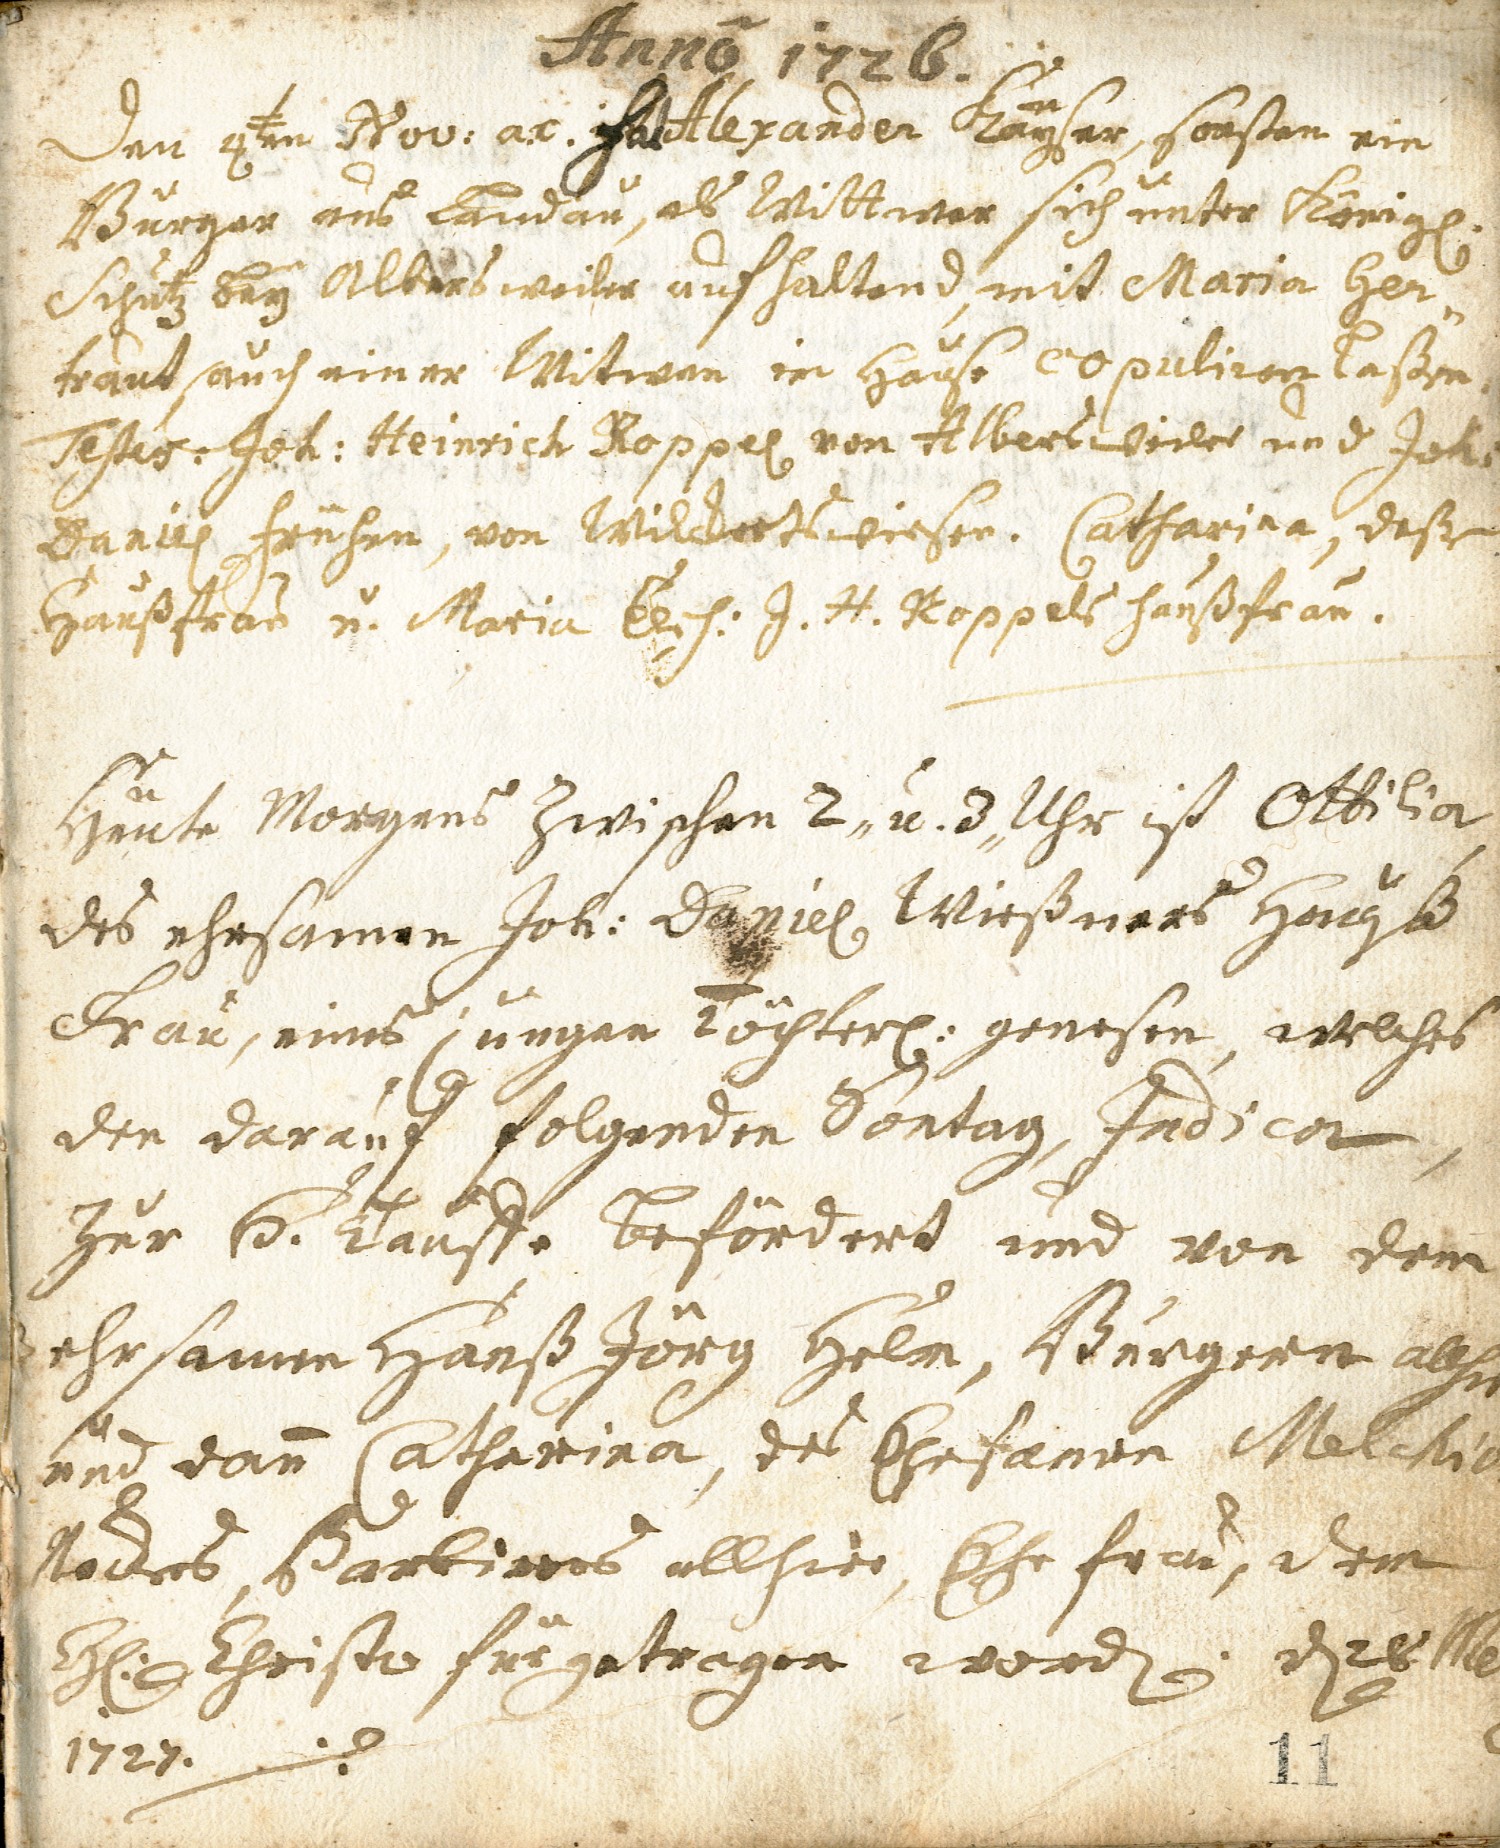 Anno 1726.
Den 9ten Nov: ac. hat Alexander Kayser, sonsten ein
Burger aus Landau, als Wittwer sich unter Königl.
Schutz bey Albersweiler aufhaltend, mit Maria Ger„
traut, auch einer Witwen im Hause copuliren laßen.
Testes. Joh: Heinrich Roppel von Albersweiler und Joh:
Daniel Frühen, von Wilckertswiesen. Catharina, deßen
Haußfrau u. Maria J. H. Roppels haußfrau.
Heute Morgens zwischen 2„ u. 3„ Uhr ist Ottilia
des ehrsamen Joh: Daniel Wießners Hauß
Frau, eines jungen Töchterl: genesen, welches
den darauf folgenden Sontag, Judica,
zur H. Tauffe befördert und von dem
ehrsamen Hanß Jörg Helm, Burgern allhie
und dann Catharina, des Ehrsamen Melchio
allhier, Ehefrau, dem
Christo fürgetragen word. d. 26
1727.
11